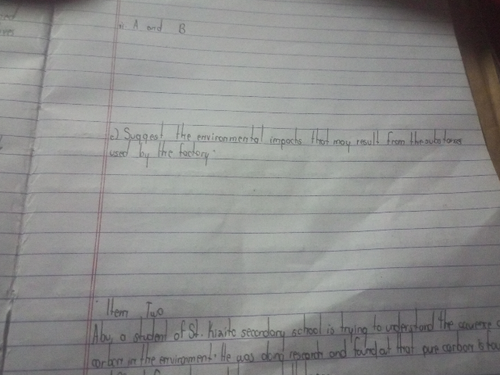 A and B
c) Suggest the environmental impacts that may result from the substances
used by the factory.
Item Two
Abu a student of St. Kizito secondary school is trying to understand the
carbon in the environment. He was doing research and found out that pure carbon is